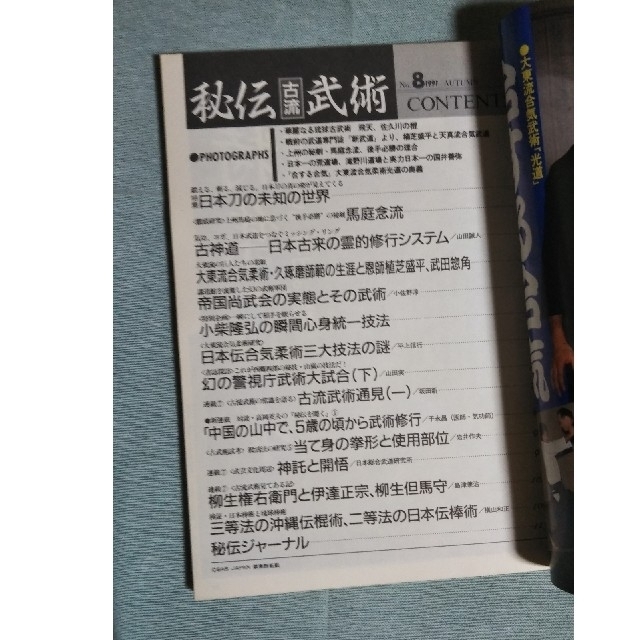 秘伝古流武術
No.8 1991 AUTUMN
CONTENT
●PHOTOGRAPHS
・華麗なる琉球古武術 飛天、佐久川の棍
・戦前の武道専門誌「新武道」より、植芝盛平と天真流合気武道
・上州の秘剣・馬庭念流、後手必勝の理合
・日本一の荒道場、滝野川道場と馬力日本一の国井善弥
・「合する合気」大東流合気柔術光道の奥義
日本刀の未知の世界
馬庭念流
古神道──日本古来の霊的修行システム／山田誠人
大東流合気柔術・久琢磨師範の生涯と恩師植芝盛平、武田惣角
帝国尚武会の実態とその武術／小佐野淳
小柴隆弘の瞬間心身統一技法
〈大東流合気柔術研究〉
日本伝合気柔術三大技法の謎／平上信行
幻の警視庁武術大試合(下)／山田實
古流武術通見(一)
「中国の山中で、5歳の頃から武術修行／于永昌(医師・気功師)
当て身の拳形と使用部位／岩井作夫
神託と開悟／日本総合武道研究所
柳生権右衛門と伊達正宗、柳生但馬守／島津兼治
三等法の沖縄伝棍術、二等法の日本伝棒術／横山和正
秘伝ジャーナル
●大東流合氣武術「光道」